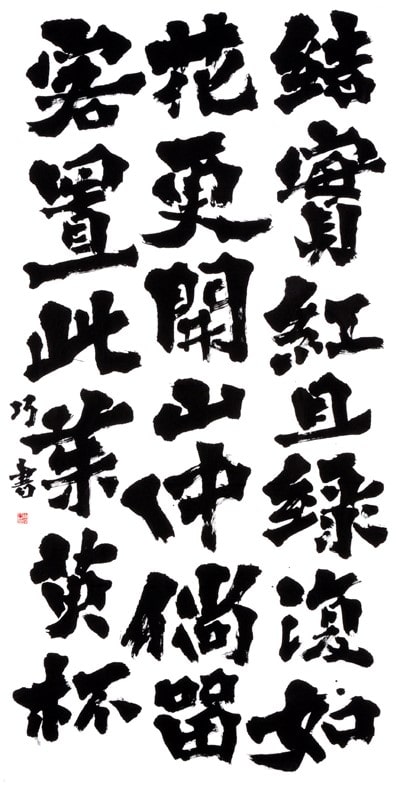 結實紅且綠復如
花更開山中倘留
客置此茱萸杯
巧書